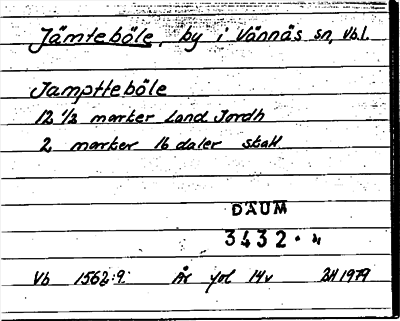 Jämteböle, by i Vännäs sn, Vb.l.
Jamptteböle
12 1/2 marker Land Jordh
2 marker 16 daler skatt
DAUM
3432.
Vb 1562:9. År fol 14v 1979